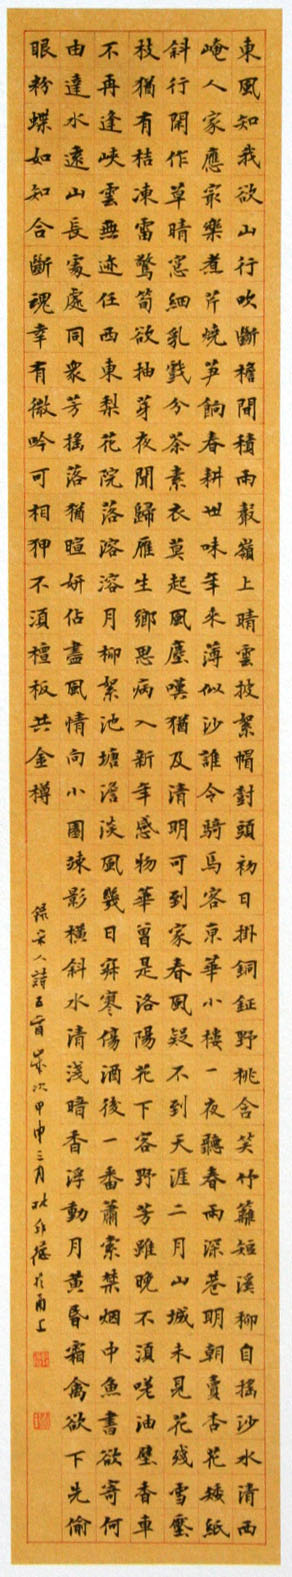 東風知我欲山行吹斷檐間積雨聲嶺上晴雲披絮帽對頭初日掛銅鉦野桃含笑竹籬短溪柳自搖沙水清西
崦人家應最樂煮芹燒笋餉春耕世味年來薄似沙誰令騎馬客京華小樓一夜聽春雨深巷明朝賣杏花矮紙
斜行閑作草晴窓細乳戲分茶素衣莫起風塵嘆猶及清明可到家春風疑不到天涯二月山城未見花殘雪壓
枝猶有桔凍雷驚筍欲抽芽夜聞歸雁生鄉思病入新年感物華曾是洛陽花下客野芳雖晚不須嗟油壁香車
不再逢峽雲無迹任西東梨花院落溶溶月柳絮池塘澹淡風幾日寂寒傷酒後一番蕭索禁烟中魚書欲寄何
由達水遠山長處處同衆芳搖落猶暄妍佔盡風情向小園疎影橫斜水清淺暗香浮動月黃昏霜禽欲下先偷
眼粉蝶如知合斷魂幸有微吟可相狎不須檀板共金樽
録宋人詩五首歲次甲申三月於甬上